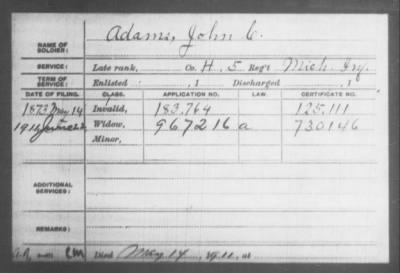 Adams, John C.
NAME OF SOLDIER:
SERVICE: Late rank, Co. H, 5 Reg't Mich. Inf.
TERM OF SERVICE: Enlisted , 1 Discharged , 1
DATE OF FILING. CLASS. APPLICATION NO. LAW. CERTIFICATE NO.
1873 May 14 Invalid, 183.764 125.111
1911 June Widow, 967216 a 730146
Minor,
ADDITIONAL SERVICES:
REMARKS:
Died May 14, 1911, at